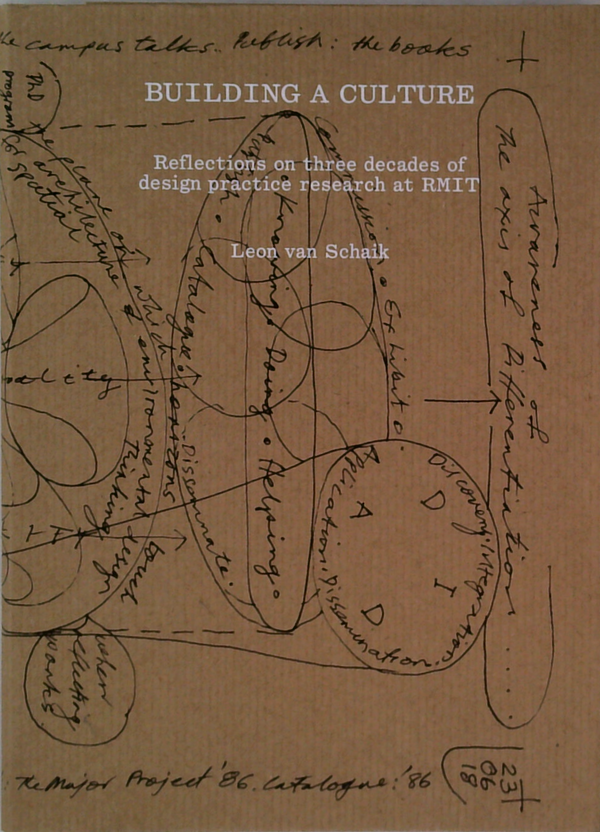 he campus talks.. Publish: the books
BUILDING A CULTURE
Reflections on three decades of
design practice research at RMIT
Leon van Schaik
PhD
program
spatial
the place of
architecture &
which
environmental
thinking
design
Catalogue
horizons
Disseminate.
Knowing. Doing. Helping.
Commission. Exhibit.
Awareness of
the axis of Differentiation....
Discovery: Integration.
Application: Dissemination.
D
I
D
A
ality
when
reflecting
works
The Major Project '86. Catalogue: '86
23
06
18